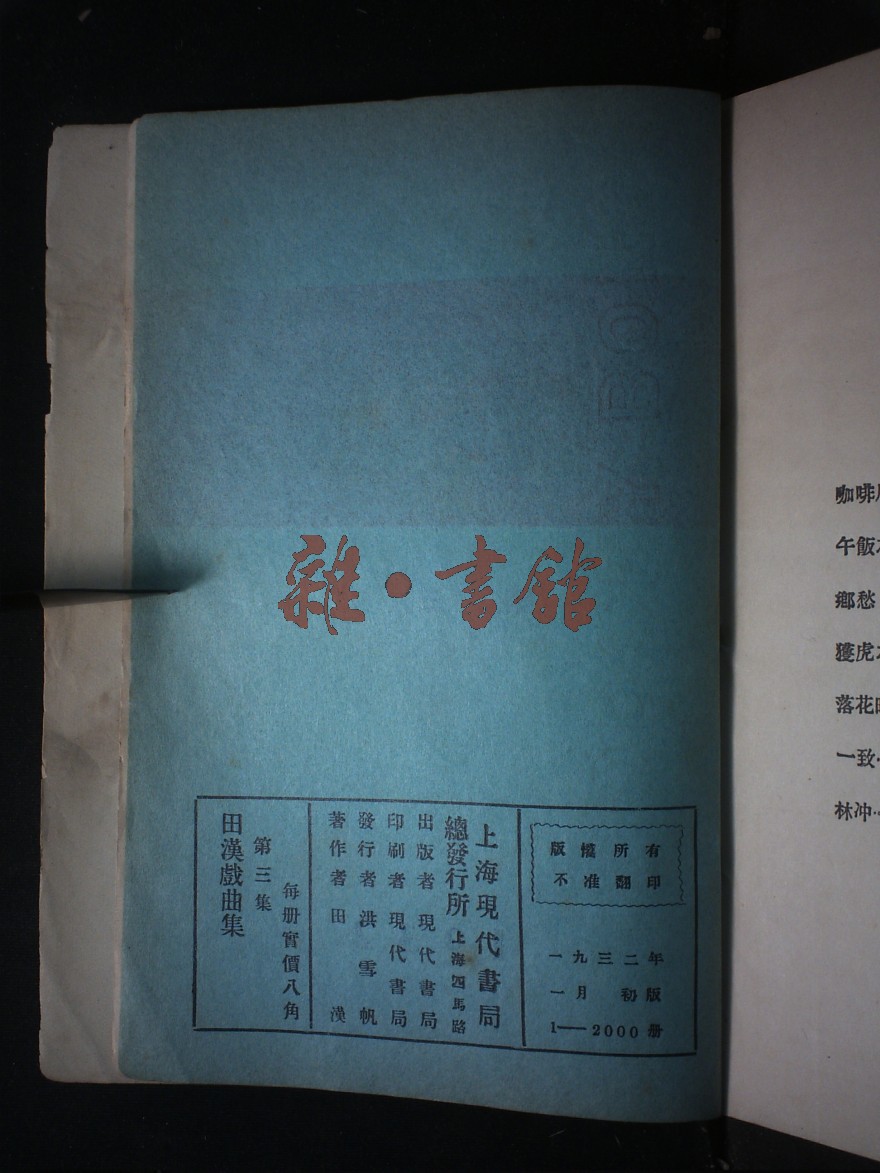 雜·書舘
版權所有
不准翻印
一九三二年
一月初版
1—2000册
上海現代書局
總發行所 上海四馬路
出版者 現代書局
印刷者 現代書局
發行者 洪雪帆
著作者 田漢
每册實價八角
第三集
田漢戲曲集
咖啡
午飯
鄉愁
獲虎
落花
一致
林冲